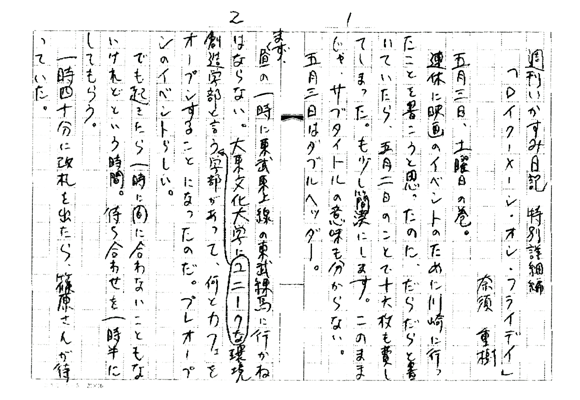 1
週刊いかすみ日記 特別詳細編
「ロイクーメーン・オン・フライデイ」
奈須 重樹
五月三日、土曜日の巻。
連休に映画のイベントのために川崎に行っ
たことを書こうと思ったのに、だらだらと書
いていたら、五月二日のことで十六枚も費し
てしまった。も少し簡潔にします。このまま
じゃ、サブタイトルの意味も分からない。
五月三日はダブルヘッダー。
2
まず、昼の一時に東武東上線の東武練馬に行かね
ばならない。大東文化大学にユニークな環境
創造学部と言う学部があって、何とカフェを
オープンすることになったのだ。プレオープ
ンのイベントらしい。
でも起きたら一時に間に合わないこともな
いけれどという時間。待ち合わせを一時半に
してもらう。
一時四十分に改札を出たら、篠原さんが待
っていた。